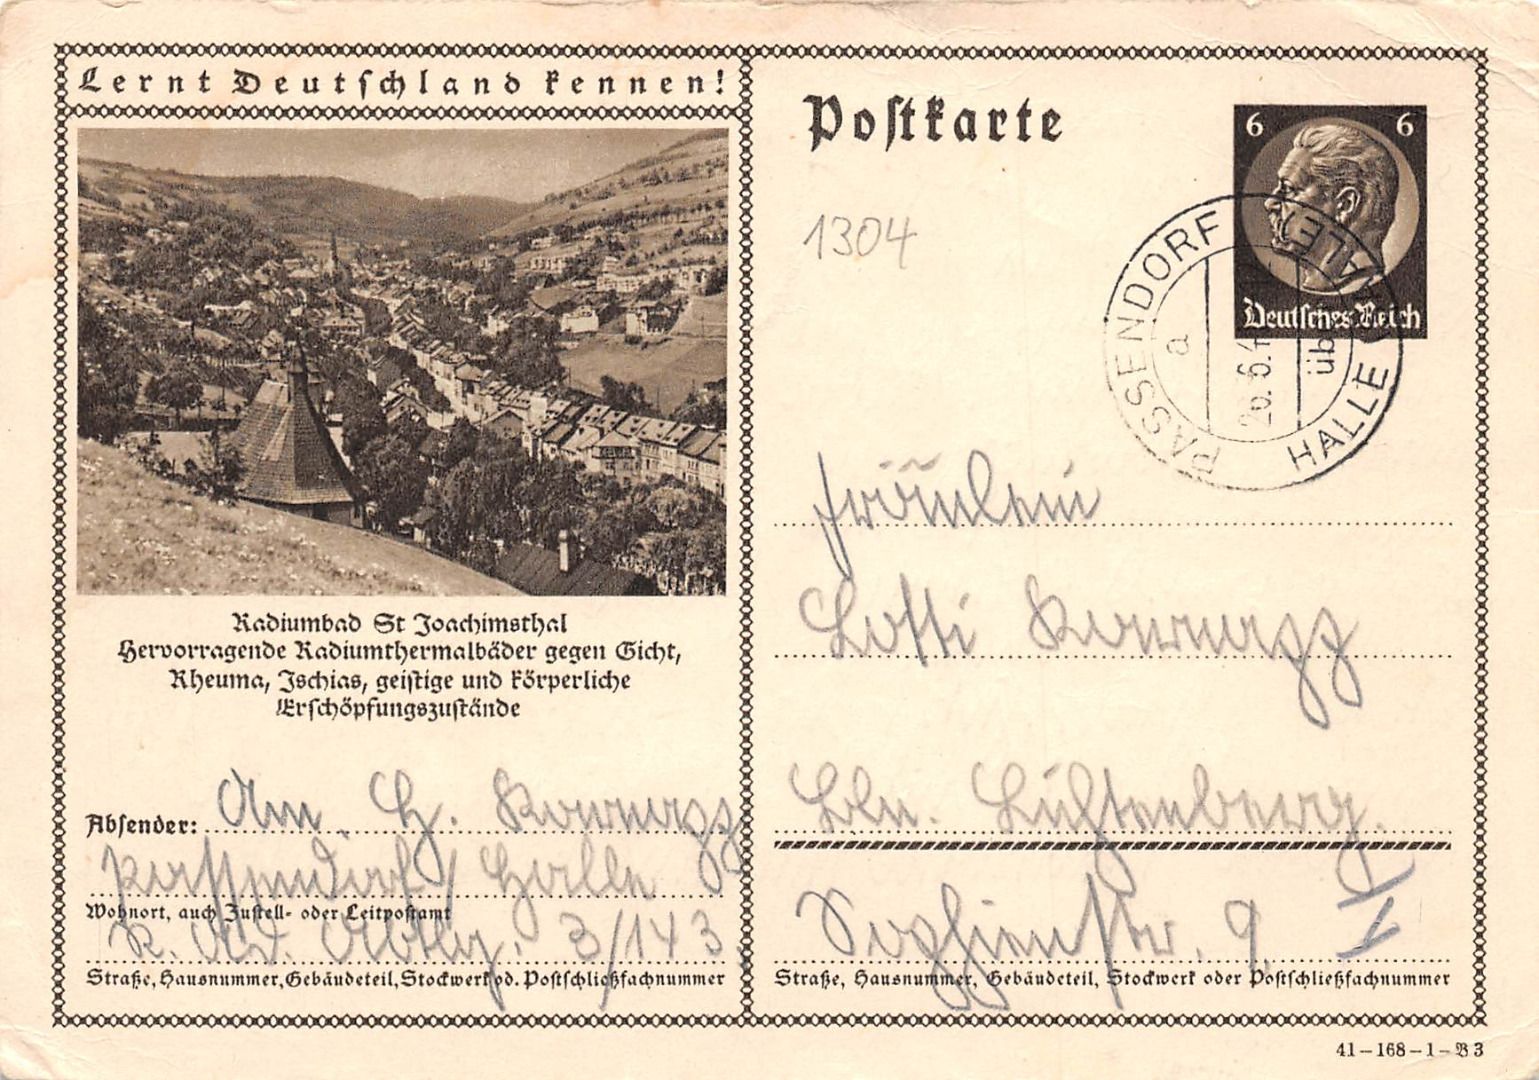 Lernt Deutschland kennen!
Radiumbad St Joachimsthal
Hervorragende Radiumthermalbäder gegen Gicht,
Rheuma, Ischias, geistige und körperliche
Erschöpfungszustände
Absender:
H.
Passendorf / Halle
Wohnort, auch Zustell- oder Leitpostamt
3/143
Straße, Hausnummer, Gebäudeteil, Stockwerk od. Postschließfachnummer
Postkarte
1304
6 6
Deutsches Reich
PASSENDORF
a
26.6.
üb
HALLE
Fräulein
Lotti
Bln. Lichtenberg.
Sophienstr. 9
Straße, Hausnummer, Gebäudeteil, Stockwerk oder Postschließfachnummer
41-168-1-B3